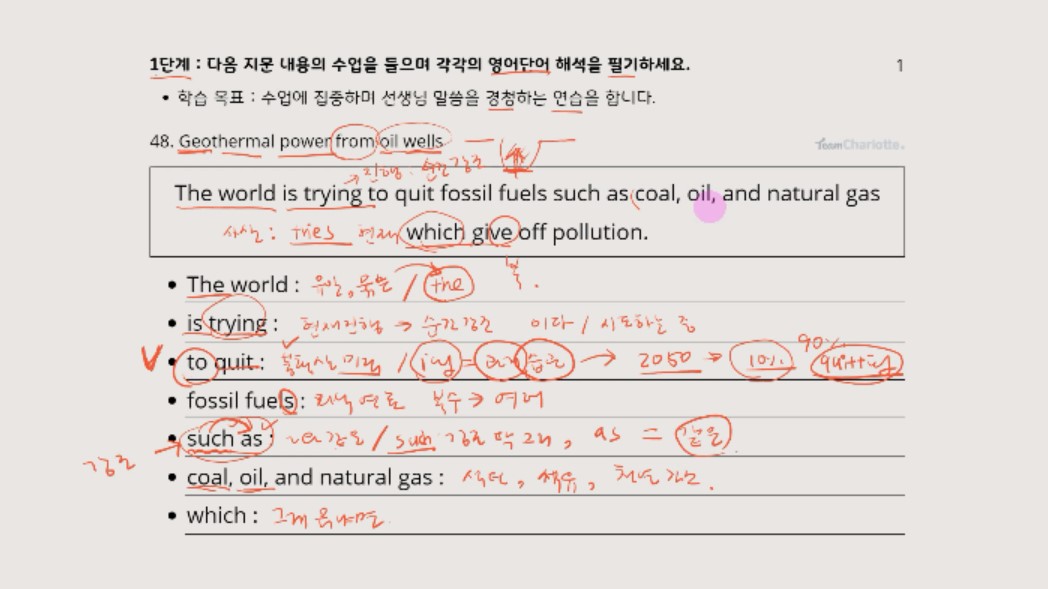 1단계 : 다음 지문 내용의 수업을 들으며 각각의 영어단어 해석을 필기하세요. 1
• 학습 목표 : 수업에 집중하며 선생님 말씀을 경청하는 연습을 합니다.
48. Geothermal power from oil wells
TeamCharlotte.
진행 : 순간강조
The world is trying to quit fossil fuels such as coal, oil, and natural gas
사실 : tries 현재 which give off pollution.
복.
• The world : 유일, 묶음 / the
• is trying : 현재진행 → 순간강조 이다 / 시도하는 중
90%
• to quit : 불확실 미래 / ing = 습관 → 2050 → 10% quitting
• fossil fuels : 화석 연료 복수 → 여러
• such as : / such 강조 딱 그거, as = 같은
강조
• coal, oil, and natural gas : 석탄, 석유, 천연 가스.
• which : 그게 뭐냐면